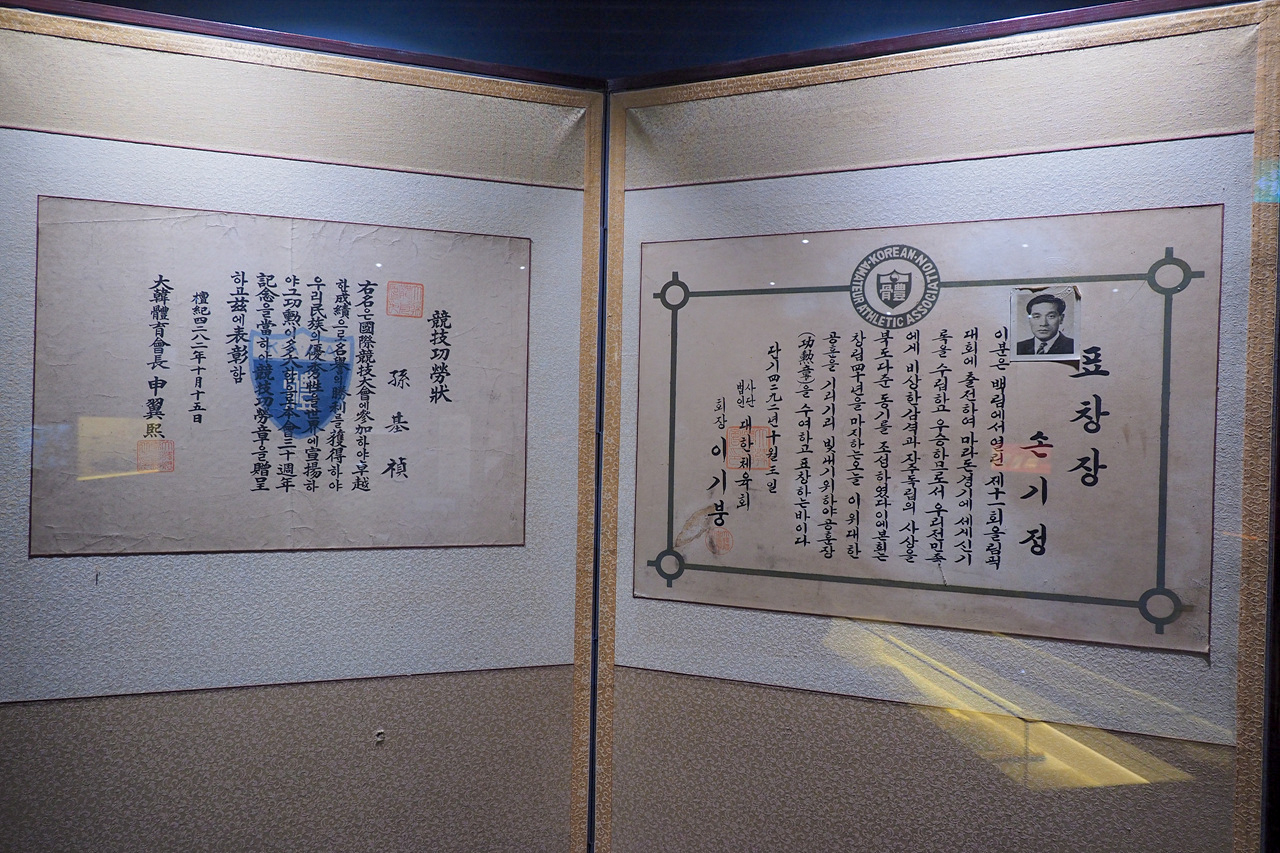 競技功勞狀
孫基禎
右名은國際競技大會에參加하야卓越
한成績으로名譽의勝利를獲得하야
우리民族의優秀性을世界에宣揚하
야그功勳이多大함으로本會三十週年
記念을當하야競技功勞章을贈呈
하고玆에表彰함
檀紀四二八二年十月十五日
大韓體育會長 申翼熙
AMATEUR ATHLETIC ASSOCIATION · KOREAN
體骨
표창장
손기정
이분은 백림에서열린 제十一회올림픽
대회에 출전하여 마라톤경기에 세계신기
록을 수립하고 우승하므로서 우리전민족
에게 비상한감격과 자주독립의 사상을
북도다준 동기를 조성하였다이에본회는
창립四十년을 마지하는오늘 이 위대한
공훈을 기리기리 빛내기위하야공훈장
(功勲章)을 수여하고 표창하는바이다
단기四二九二년十월三일
사단법인 대한체육회
회장 이기붕